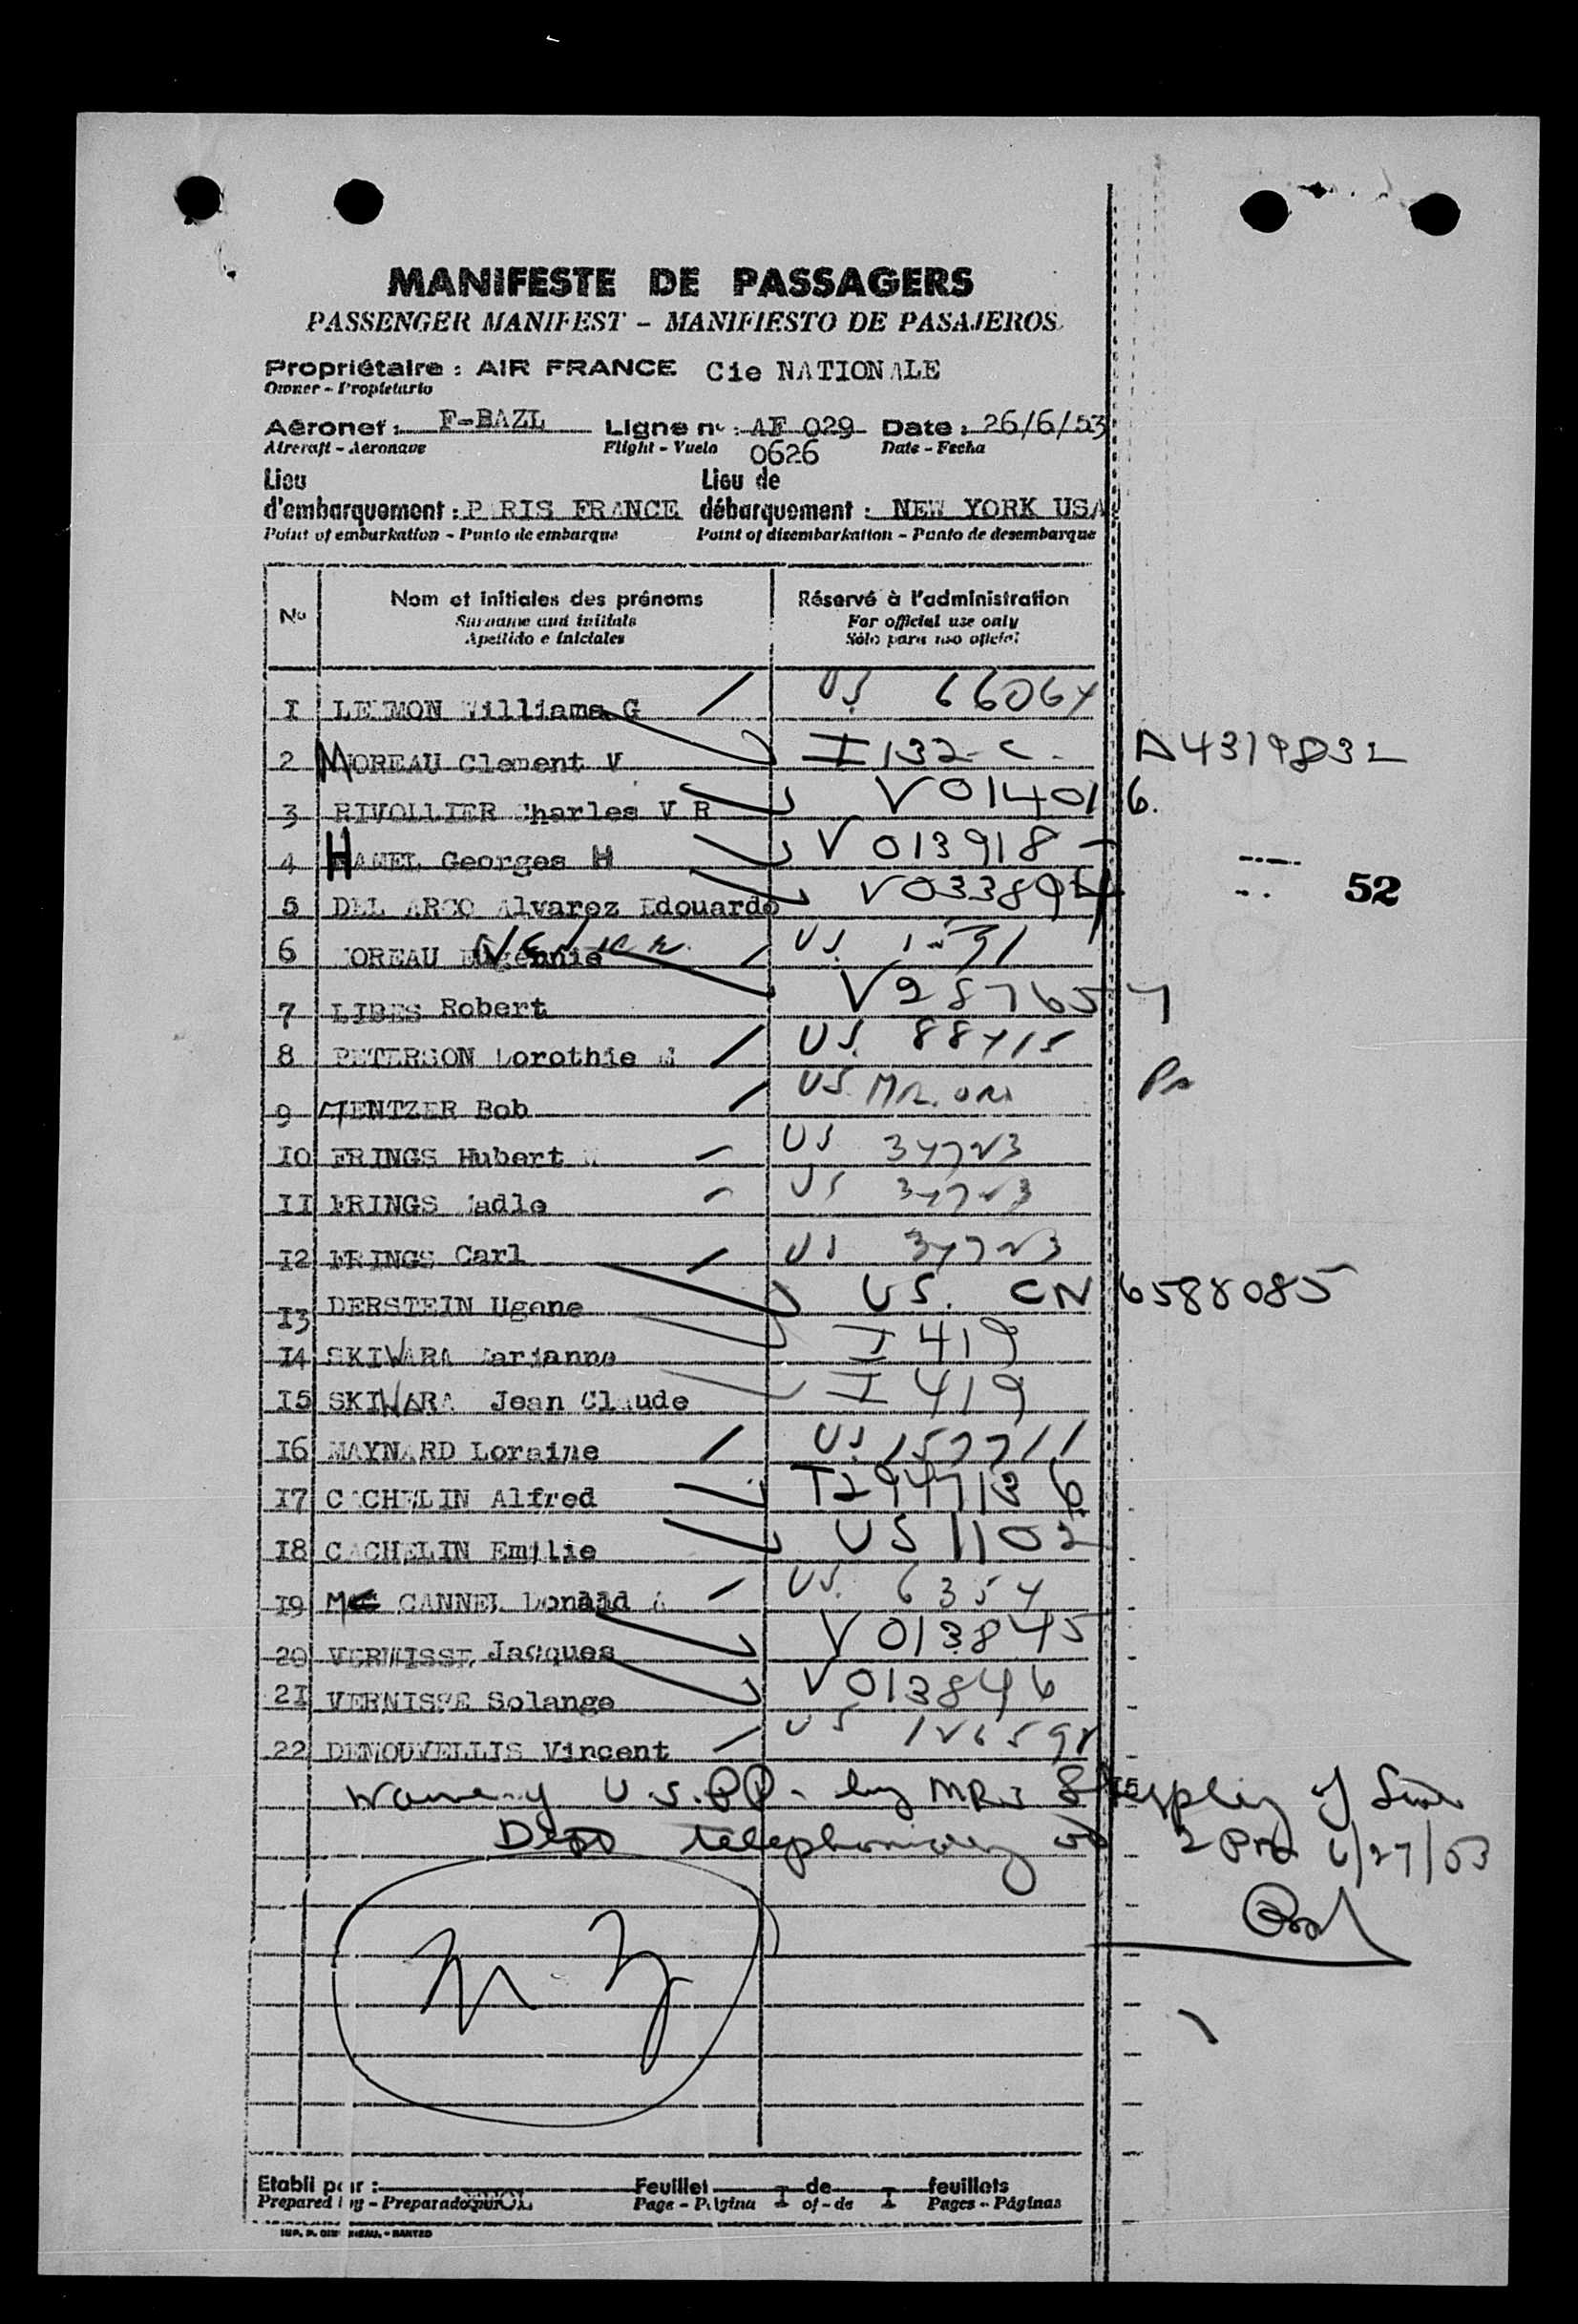 MANIFESTE DE PASSAGERS
PASSENGER MANIFEST - MANIFIESTO DE PASAJEROS
Propriétaire : AIR FRANCE Cie NATIONALE
Owner - Propietario
Aéronef : F-BAZL Ligne n° : AF 029 Date : 26/6/53
Aircraft - Aeronave Flight - Vuelo 0626 Date - Fecha
Lieu Lieu de
d'embarquement : PARIS FRANCE débarquement : NEW YORK USA
Point of embarkation - Punto de embarque Point of disembarkation - Punto de desembarque
No Nom et initiales des prénoms Réservé à l'administration
Surname and initials For official use only
Apellido e iniciales Sólo para uso oficial
I Williams G US 66064
2 MOREAU Clement V I 132-C. A4319832
3 RIVOLLIER Charles V R V014016.
4 HAMEL Georges H V 013918
5 DEL ARCO Alvarez Edouardo V033894
52
6 MOREAU Eugennie US.
7 LIBES Robert V287657
8 PETERSON Dorothie M US. 88415
9 MENTZER Bob US
10 FRINGS Hubert US 34723
II FRINGS US 34723
I2 FRINGS Carl US 34723
I3 DERSTEIN Ugene US. CN 6588085
I4 SKIWARA Marianne I 419
I5 SKIWARA Jean Claude I 419
I6 MAYNARD Loraine US 157711
I7 CACHELIN Alfred T2947136
I8 CACHELIN Emilie US 1102
I9 CANNEL Donald A US. 6354
20 VERNISSE Jacques V 013845
2I VERNISSE Solange V013846
22 DEMOUVELLIS Vincent US
U.S.PP. by of
Dept 2 PM 6/27/53
Etabli par : Feuillet I de I feuillets
Prepared by - Preparado por Page - Página of - de Pages - Páginas